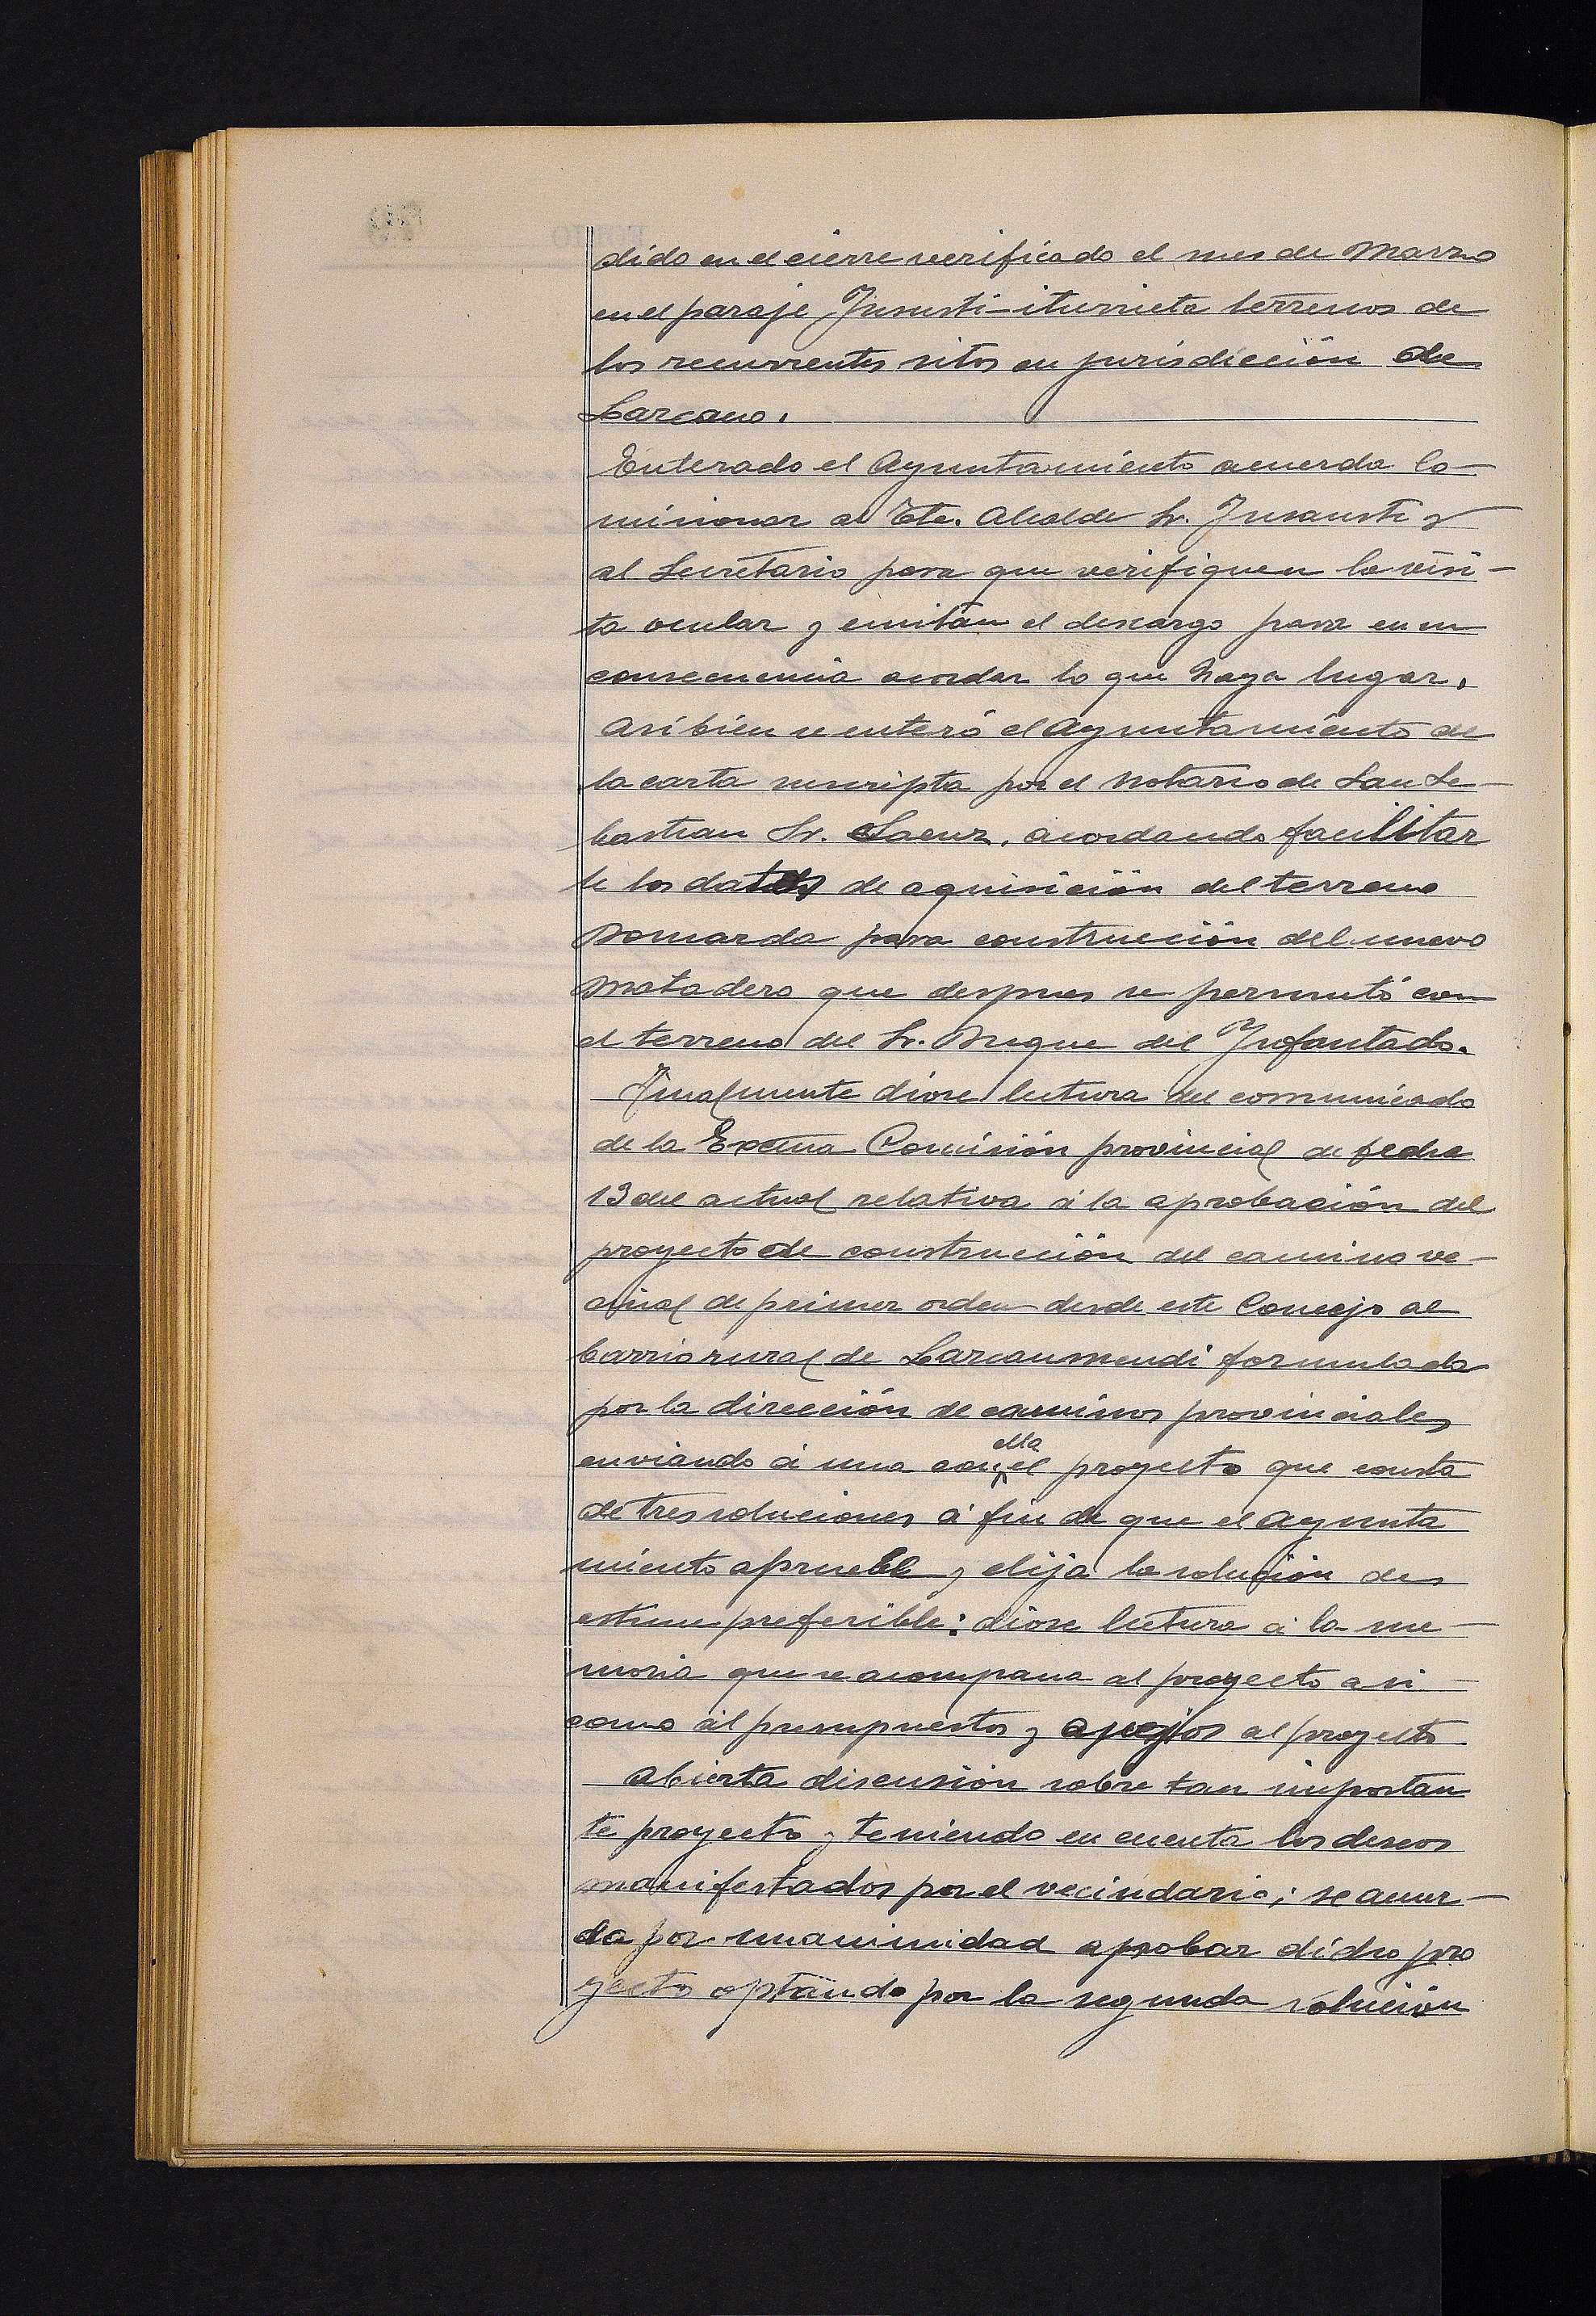 dido en el cierre verificado el mes de Marzo
en el paraje Jususti-iturrieta terrenos de
los recurrentes sitos en jurisdicción de
Lazcano.
Enterado el Ayuntamiento acuerda co-
misionar al Tte. Alcalde Sr. Insausti y
al Secretario para que verifiquen la visi-
ta ocular y emitan el descargo para en su
consecuencia acordar lo que haya lugar.
Asi bien se enteró el Ayuntamiento de
la carta suscripta por el Notario de San Se-
bastian Sr. Saenz, acordando facilitar
le los datos de aquisición del terreno
para construcción del nuevo
Matadero que despues se permutó con
el terreno del Sr. Duque del Infantado.
Finalmente diose lectura del comunicado
de la Excma Comisión provincial de fecha
13 del actual relativa á la aprobación del
proyecto de construcción del camino ve-
cinal de primer orden desde este Concejo al
barrio rural de Lazcanomendi formulada
por la dirección de caminos provinciales
enviando á una con ella el proyecto que consta
de tres soluciones á fin de que el Ayunta
miento apruebe y elija la solución des
estime preferible: diose lectura á la me-
moria que se acompana al proyecto asi
como al presupuestos y al proyecto
Abierta discusión sobre tan importan
te proyecto y teniendo en cuenta los deseos
manifestados por el vecindario; se acuer-
da por unanimidad aprobar dicho pro
yecto optando por la segunda solución